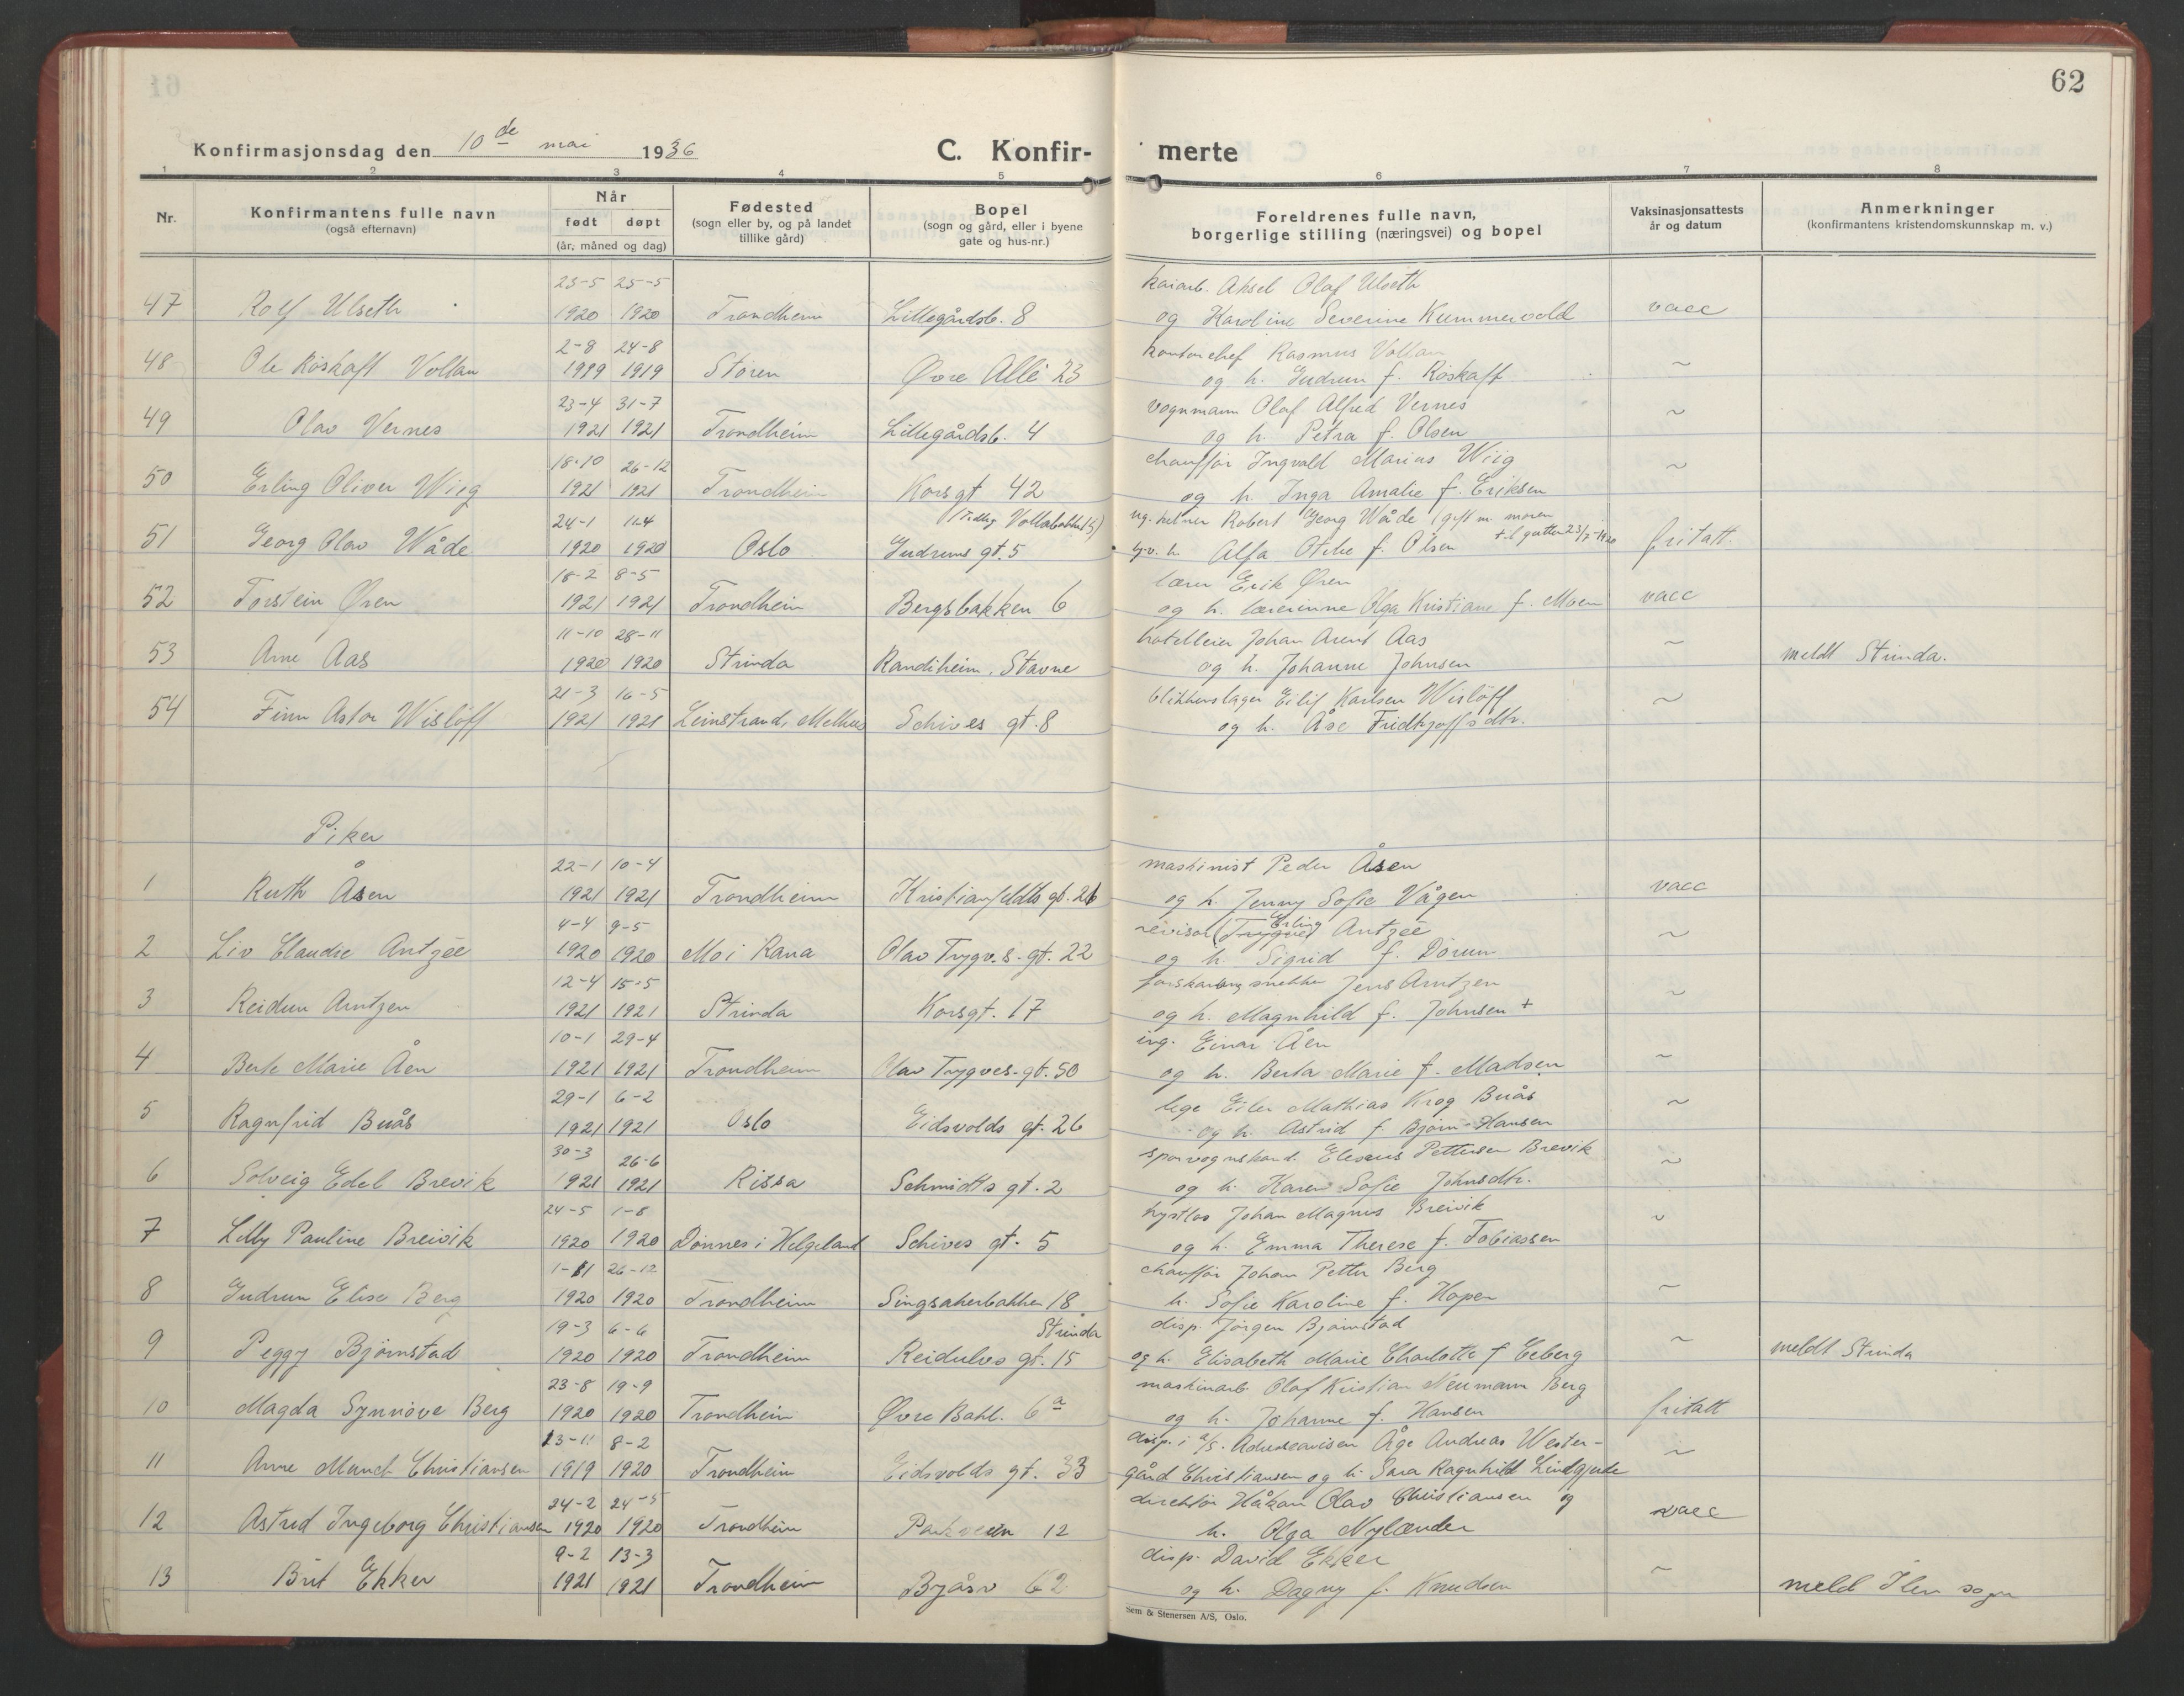 62
Konfirmasjonsdag den 10de mai 1936
C. Konfir-merte
1 2 3 4 5 6 7 8
Nr.
Konfirmantens fulle navn
(også efternavn)
Når
født døpt
(år, måned og dag)
Fødested
(sogn eller by, og på landet
tillike gård)
Bopel
(sogn og gård, eller i byene
gate og hus-nr.)
Foreldrenes fulle navn,
borgerlige stilling (næringsvei) og bopel
Vaksinasjonsattests
år og datum
Anmerkninger
(konfirmantens kristendomskunnskap m. v.)
23-5 25-5 kaiarb. Aksel Olaf Ulseth
47 Rolf Ulseth 1920 1920 Trondheim Lillegårdsb. 8 og Karoline Severine Kummervold vacc
2-8 24-8 kontorchef Rasmus Vollan
48 Ole Röskaft Vollan 1919 1919 Stören Øvre Allé 23 og h. Gudrun f. Röskaft ~
23-4 31-7 vognmann Olaf Alfred Vernes
49 Olav Vernes 1921 1921 Trondheim Lillegårdsb. 4 og h. Petra f. Olsen ~
18-10 26-12 chauffør Ingvald Marius Wiig
50 Erling Oliver Wiig 1921 1921 Trondheim Korsgt 42 og h. Inga Amalie f. Eriksen ~
24-1 11-4 (tidlig Vollabakken 15) Robert Georg Wåde (gift m. moren
51 Georg Olav Wåde 1920 1920 Oslo Gudruns gt. 5 h. Alfa f. Olsen til gutten 23/2-1920 fritatt.
18-2 8-5 lærer Erik Øren
52 Torstein Øren 1921 1921 Trondheim Bergsbakken 6 og h. lærerinne Olga Kristiane f. Moen vacc
11-10 28-11 hotelleier Johan Arent Aas
53 Arne Aas 1920 1920 Strinda Randiheim, Stavne og h. Johanne Johnsen ~ meldt Strinda.
21-3 16-5 blikkenslager Eilif Karlsen Wislöff
54 Finn Astor Wislöff 1921 1921 Leinstrand, Melhus Schives gt. 8 og h. Åse Fridhjoffsdtr. ~
Piker
22-1 10-4 maskinist Peder Åsen
1 Ruth Åsen 1921 1921 Trondheim Kristianfeldts gt. 26 og h. Jenny Sofie Vågen vacc
4-4 9-5 revisor (Trygve) Erling Antzée
2 Liv Claudie Antzée 1920 1920 Mo i Rana Olav Trygv.s. gt. 22 og h. Sigrid f. Dørum ~
12-4 15-5 snekker Jens Arntzen
3 Reidun Arntzen 1921 1921 Strinda Korsgt. 17 og h. Magnhild f. Johnsen + ~
10-1 29-4 ing. Einar Åen
4 Berte Marie Åen 1921 1921 Trondheim Olav Trygves. gt. 50 og h. Berta Marie f. Madsen ~
29-1 6-2 lege Eiler Mathias Krog Buås
5 Ragnfrid Buås 1921 1921 Oslo Eidsvolds gt. 26 og h. Astrid f. Bjørn-Hansen ~
30-3 26-6 sporvognskond. Eleseus Pettersen Brevik
6 Solveig Edel Brevik 1921 1921 Rissa Schmidts gt. 2 og h. Karen Sofie Johnsdtr. ~
24-5 1-8 kystlos Johan Magnus Breivik
7 Lilly Pauline Breivik 1920 1920 Dønnes i Helgeland Schives gt. 5 og h. Emma Therese f. Tobiassen ~
1-11 26-12 chauffør Johan Petter Berg
8 Gudrun Elise Berg 1920 1920 Trondheim Singsakerbakken 18 h. Sofie Karoline f. Hopen ~
19-3 6-6 Strinda disp. Jørgen Bjørnstad
9 Peggy Björnstad 1920 1920 Trondheim Reidulvs gt. 15 og h. Elisabeth Marie Charlotte f Eeberg ~ meldt Strinda
23-8 19-9 maskinarb. Olaf Kristian Neumann Berg
10 Magda Synnöve Berg 1920 1920 Trondheim Øvre Bakl. 6a og h. Johanne f. Hansen fritatt
13-11 8-2 disp. i a/s. Adresseavisen Åge Andreas Wester-
11 Anne Munch Christiansen 1919 1920 Trondheim Eidsvolds gt. 33 gård Christiansen og h. Sara Ragnhild Lindgjerde ~
24-2 24-5 direktør Håkon Olav Christiansen og
12 Astrid Ingeborg Christiansen 1920 1920 Trondheim Parkveien 12 h. Olga Nylænder vacc
9-2 13-3 disp. David Ekker
13 Brit Ekker 1921 1921 Trondheim Byåsv 62 og h. Dagny f. Knudsen ~ meld Ilen sogn
Sem & Stenersen A/S, Oslo.